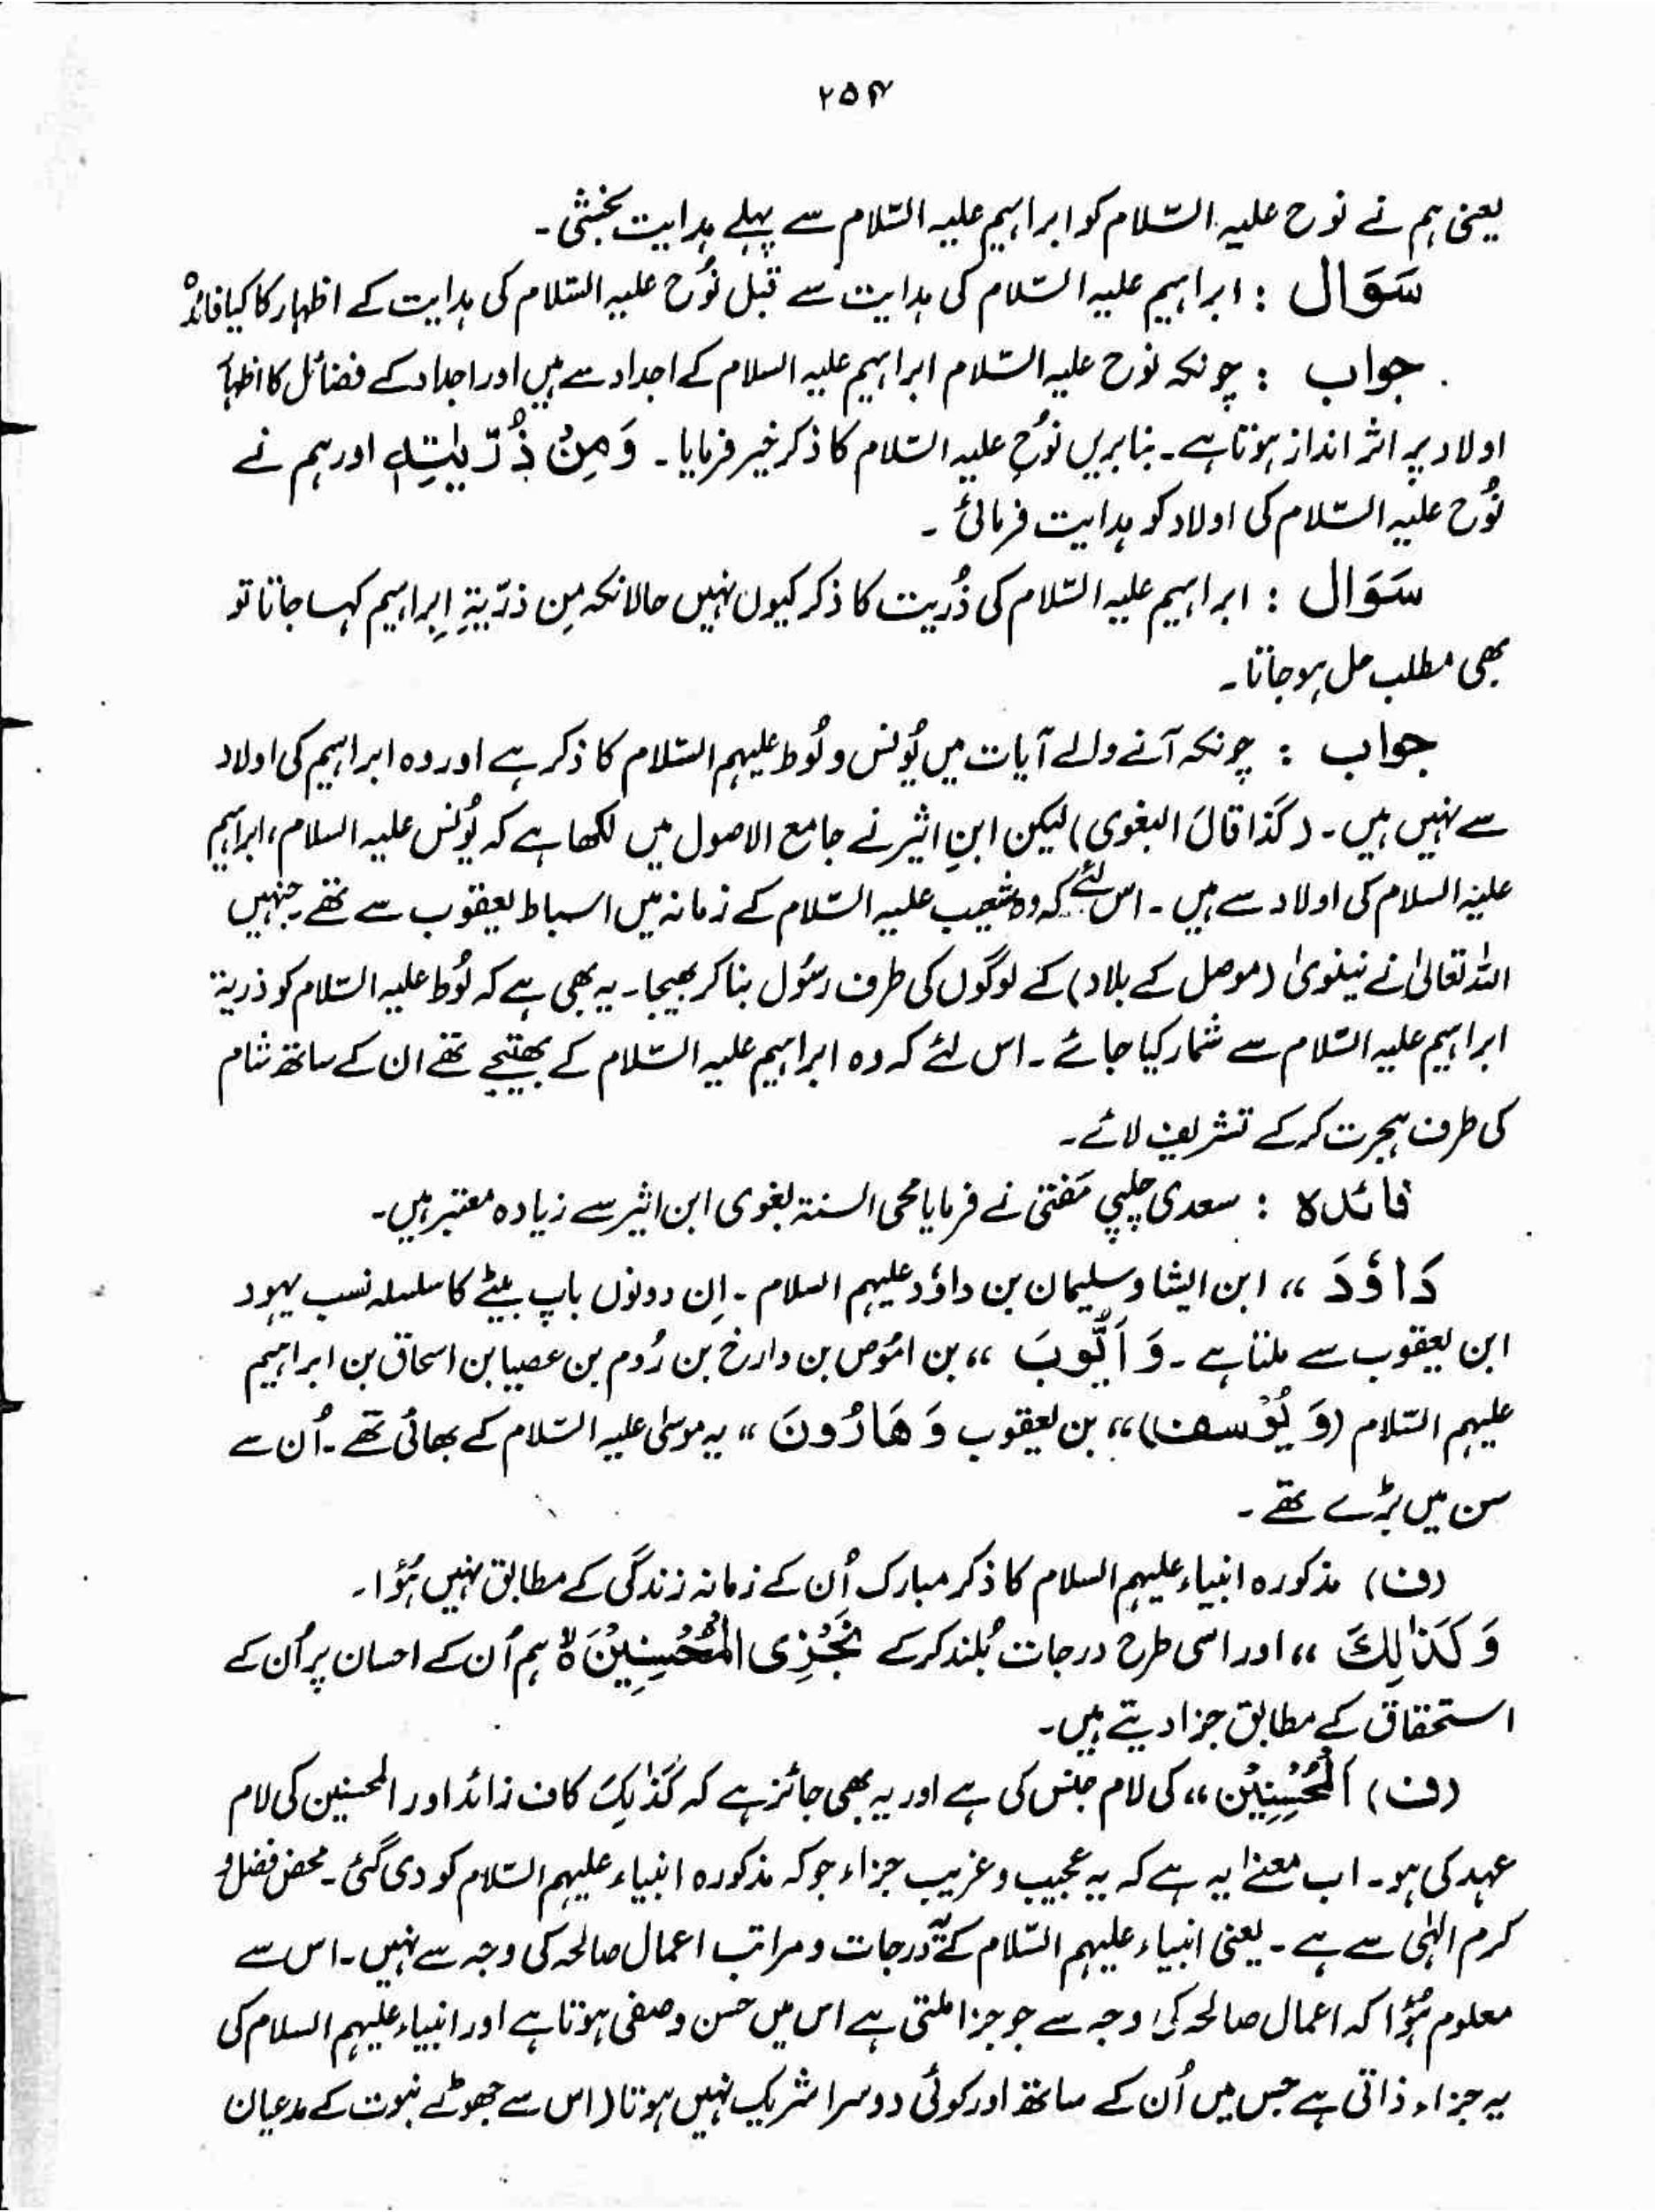 ۲۵۴
یعنی ہم نے نوح علیہ السّلام کو ابراہیم علیہ السّلام سے پہلے ہدایت بخشی۔
سَوَال : ابراہیم علیہ السّلام کی ہدایت سے قبل نُوح علیہ السّلام کی ہدایت کے اظہار کا کیا فائدہ
جواب : چونکہ نوح علیہ السّلام ابراہیم علیہ السلام کے اجداد سے ہیں اور اجداد کے فضائل کا اظہار
اولاد پر اثر انداز ہوتا ہے۔ بنا بریں نُوح علیہ السّلام کا ذکر خیر فرمایا۔ وَمِنْ ذُرِّیَّتِہٖ اور ہم نے
نُوح علیہ السّلام کی اولاد کو ہدایت فرمائی ۔
سَوَال : ابراہیم علیہ السّلام کی ذُریت کا ذکر کیوں نہیں حالانکہ مِن ذرّیۃِ اِبراہیم کہا جاتا تو
بھی مطلب حل ہو جاتا۔
جواب : چونکہ آنے والے آیات میں یُونس و لُوط علیہم السّلام کا ذکر ہے اور وہ ابراہیم کی اولاد
سے نہیں ہیں۔ (کَذَا قَالَ البغوی) لیکن ابنِ اثیر نے جامع الاصول میں لکھا ہے کہ یُونس علیہ السلام، ابراہیم
علیہ السلام کی اولاد سے ہیں ۔ اس لئے کہ وہ شعیب علیہ السّلام کے زمانہ میں اسباط یعقوب سے تھے جنہیں
اللہ تعالیٰ نے نینویٰ (موصل کے بلاد) کے لوگوں کی طرف رسُول بنا کر بھیجا۔ یہ بھی ہے کہ لُوط علیہ السّلام کو ذریۃ
ابراہیم علیہ السّلام سے شمار کیا جائے ۔ اس لئے کہ وہ ابراہیم علیہ السّلام کے بھتیجے تھے ان کے ساتھ شام
کی طرف ہجرت کر کے تشریف لائے۔
فائدہ : سعدی چلپی مفتی نے فرمایا محی السنۃ بغوی ابن اثیر سے زیادہ معتبر ہیں۔
دَاوٗدَ ،، ابن الیشا و سلیمان بن داؤد علیہم السلام ۔ اِن دونوں باپ بیٹے کا سلسلہ نسب یہود
ابن یعقوب سے ملتا ہے ۔ وَ اَیُّوبَ ،، بن امُوص بن دارخ بن رُوم بن عصیا بن اسحاق بن ابراہیم
علیہم السّلام (وَ یُوْسف) ،، بن یعقوب وَ ھَارُونَ ،، یہ موسیٰ علیہ السّلام کے بھائی تھے ۔ اُن سے
سن میں بڑے تھے ۔
(ف) مذکورہ انبیاء علیہم السلام کا ذکر مبارک اُن کے زمانہ زندگی کے مطابق نہیں ہُؤا۔
وَ کَذٰلِکَ ،، اور اسی طرح درجات بُلند کر کے نَجْزِی الْمُحْسِنِیْنَ ہ ہم اُن کے احسان پر اُن کے
استحقاق کے مطابق جزا دیتے ہیں۔
(ف) اَلْمُحْسِنِیْن ،، کی لام جنس کی ہے اور یہ بھی جائز ہے کہ کَذٰلِکَ کاف زائد اور المحسنین کی لام
عہد کی ہو۔ اب معنےٰ یہ ہے کہ یہ عجیب و غریب جزاء جو کہ مذکورہ انبیاء علیہم السّلام کو دی گئی ۔ محض فضل و
کرم الٰہی سے ہے ۔ یعنی انبیاء علیہم السّلام کے یہ درجات و مراتب اعمال صالحہ کی وجہ سے نہیں ۔ اس سے
معلوم ہُؤا کہ اعمال صالحہ کی وجہ سے جو جزا ملتی ہے اس میں حسن وصفی ہوتا ہے اور انبیاء علیہم السلام کی
یہ جزاء ذاتی ہے جس میں اُن کے ساتھ اور کوئی دوسرا شریک نہیں ہوتا (اس سے جھوٹے نبوت کے مدعیان